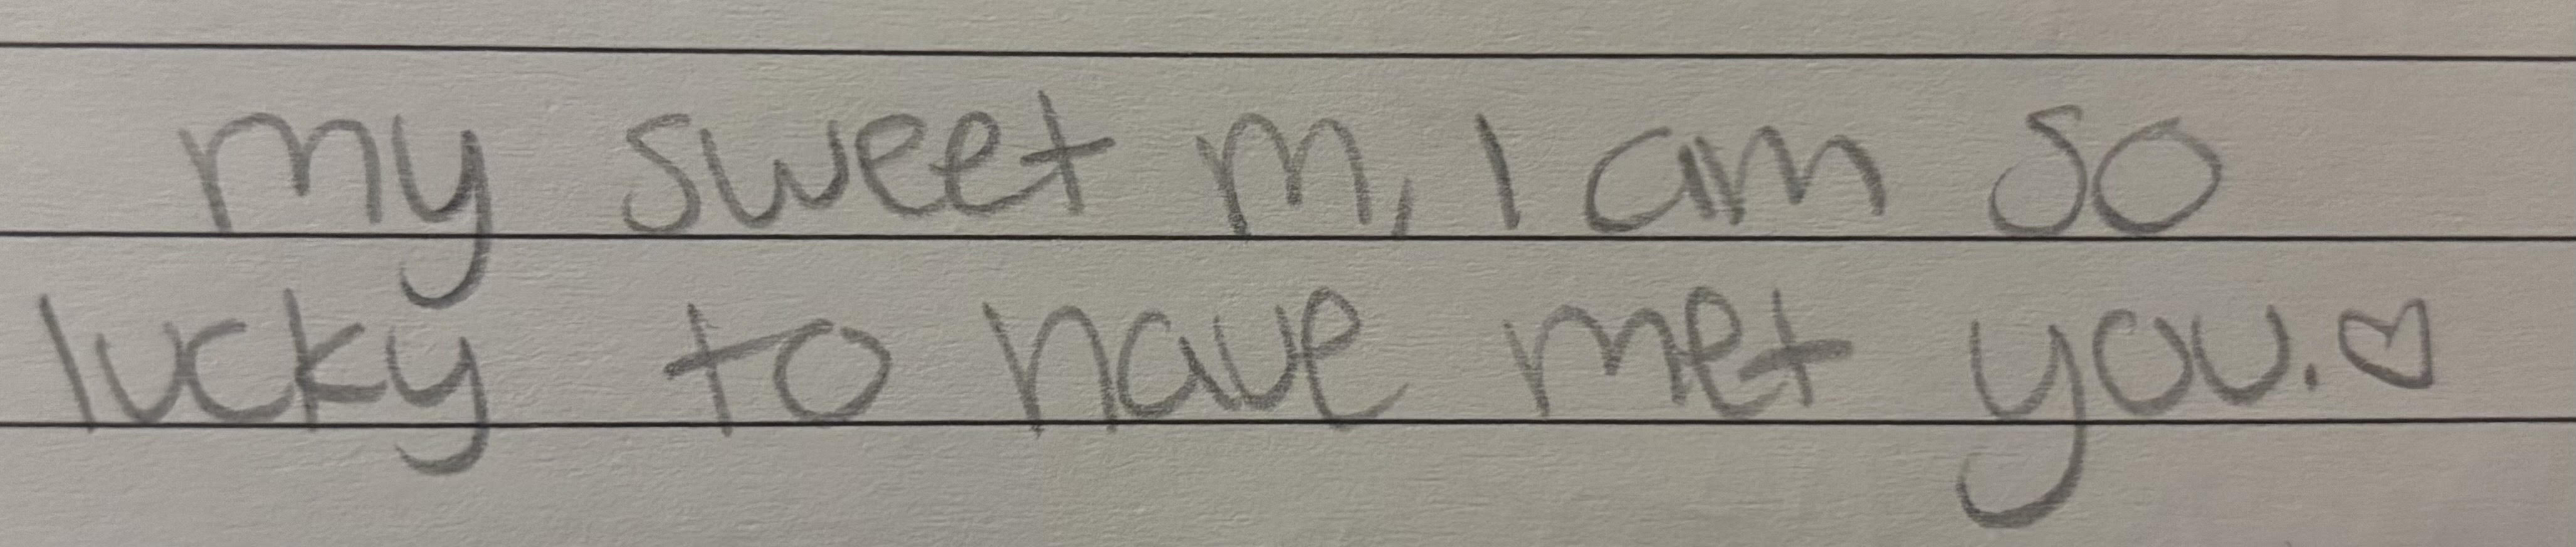 my sweet m, I am so
lucky to have met you. ♡